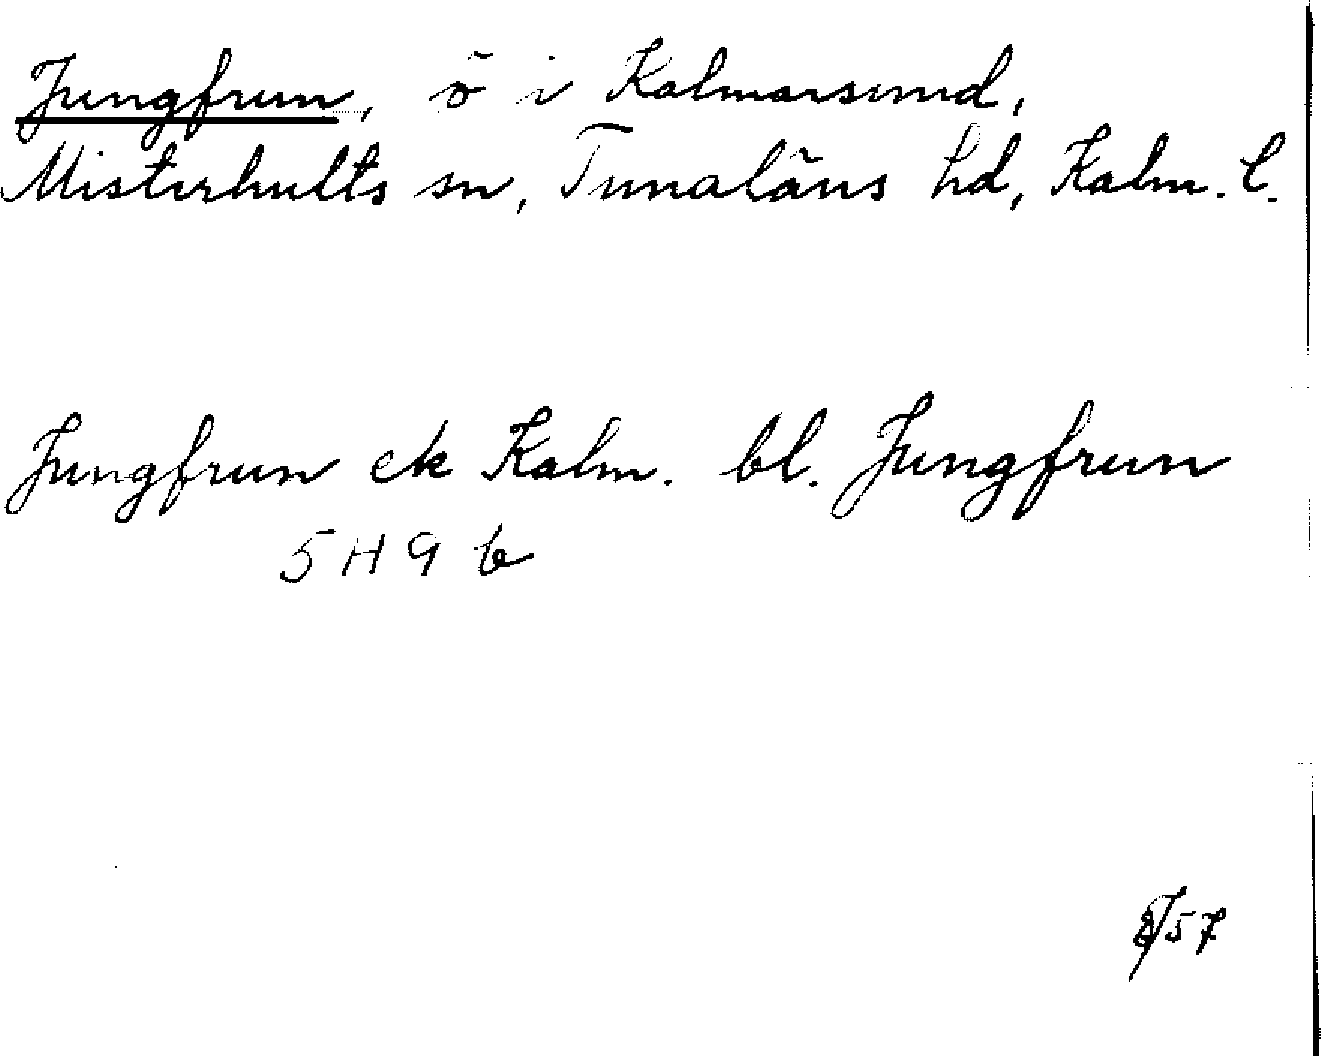 Jungfrun, ö i Kalmarsund,
Misterhults sn, Tunaläns hd, Kalm. l.
Jungfrun ek Kalm. bl. Jungfrun
5 H 9 b
57